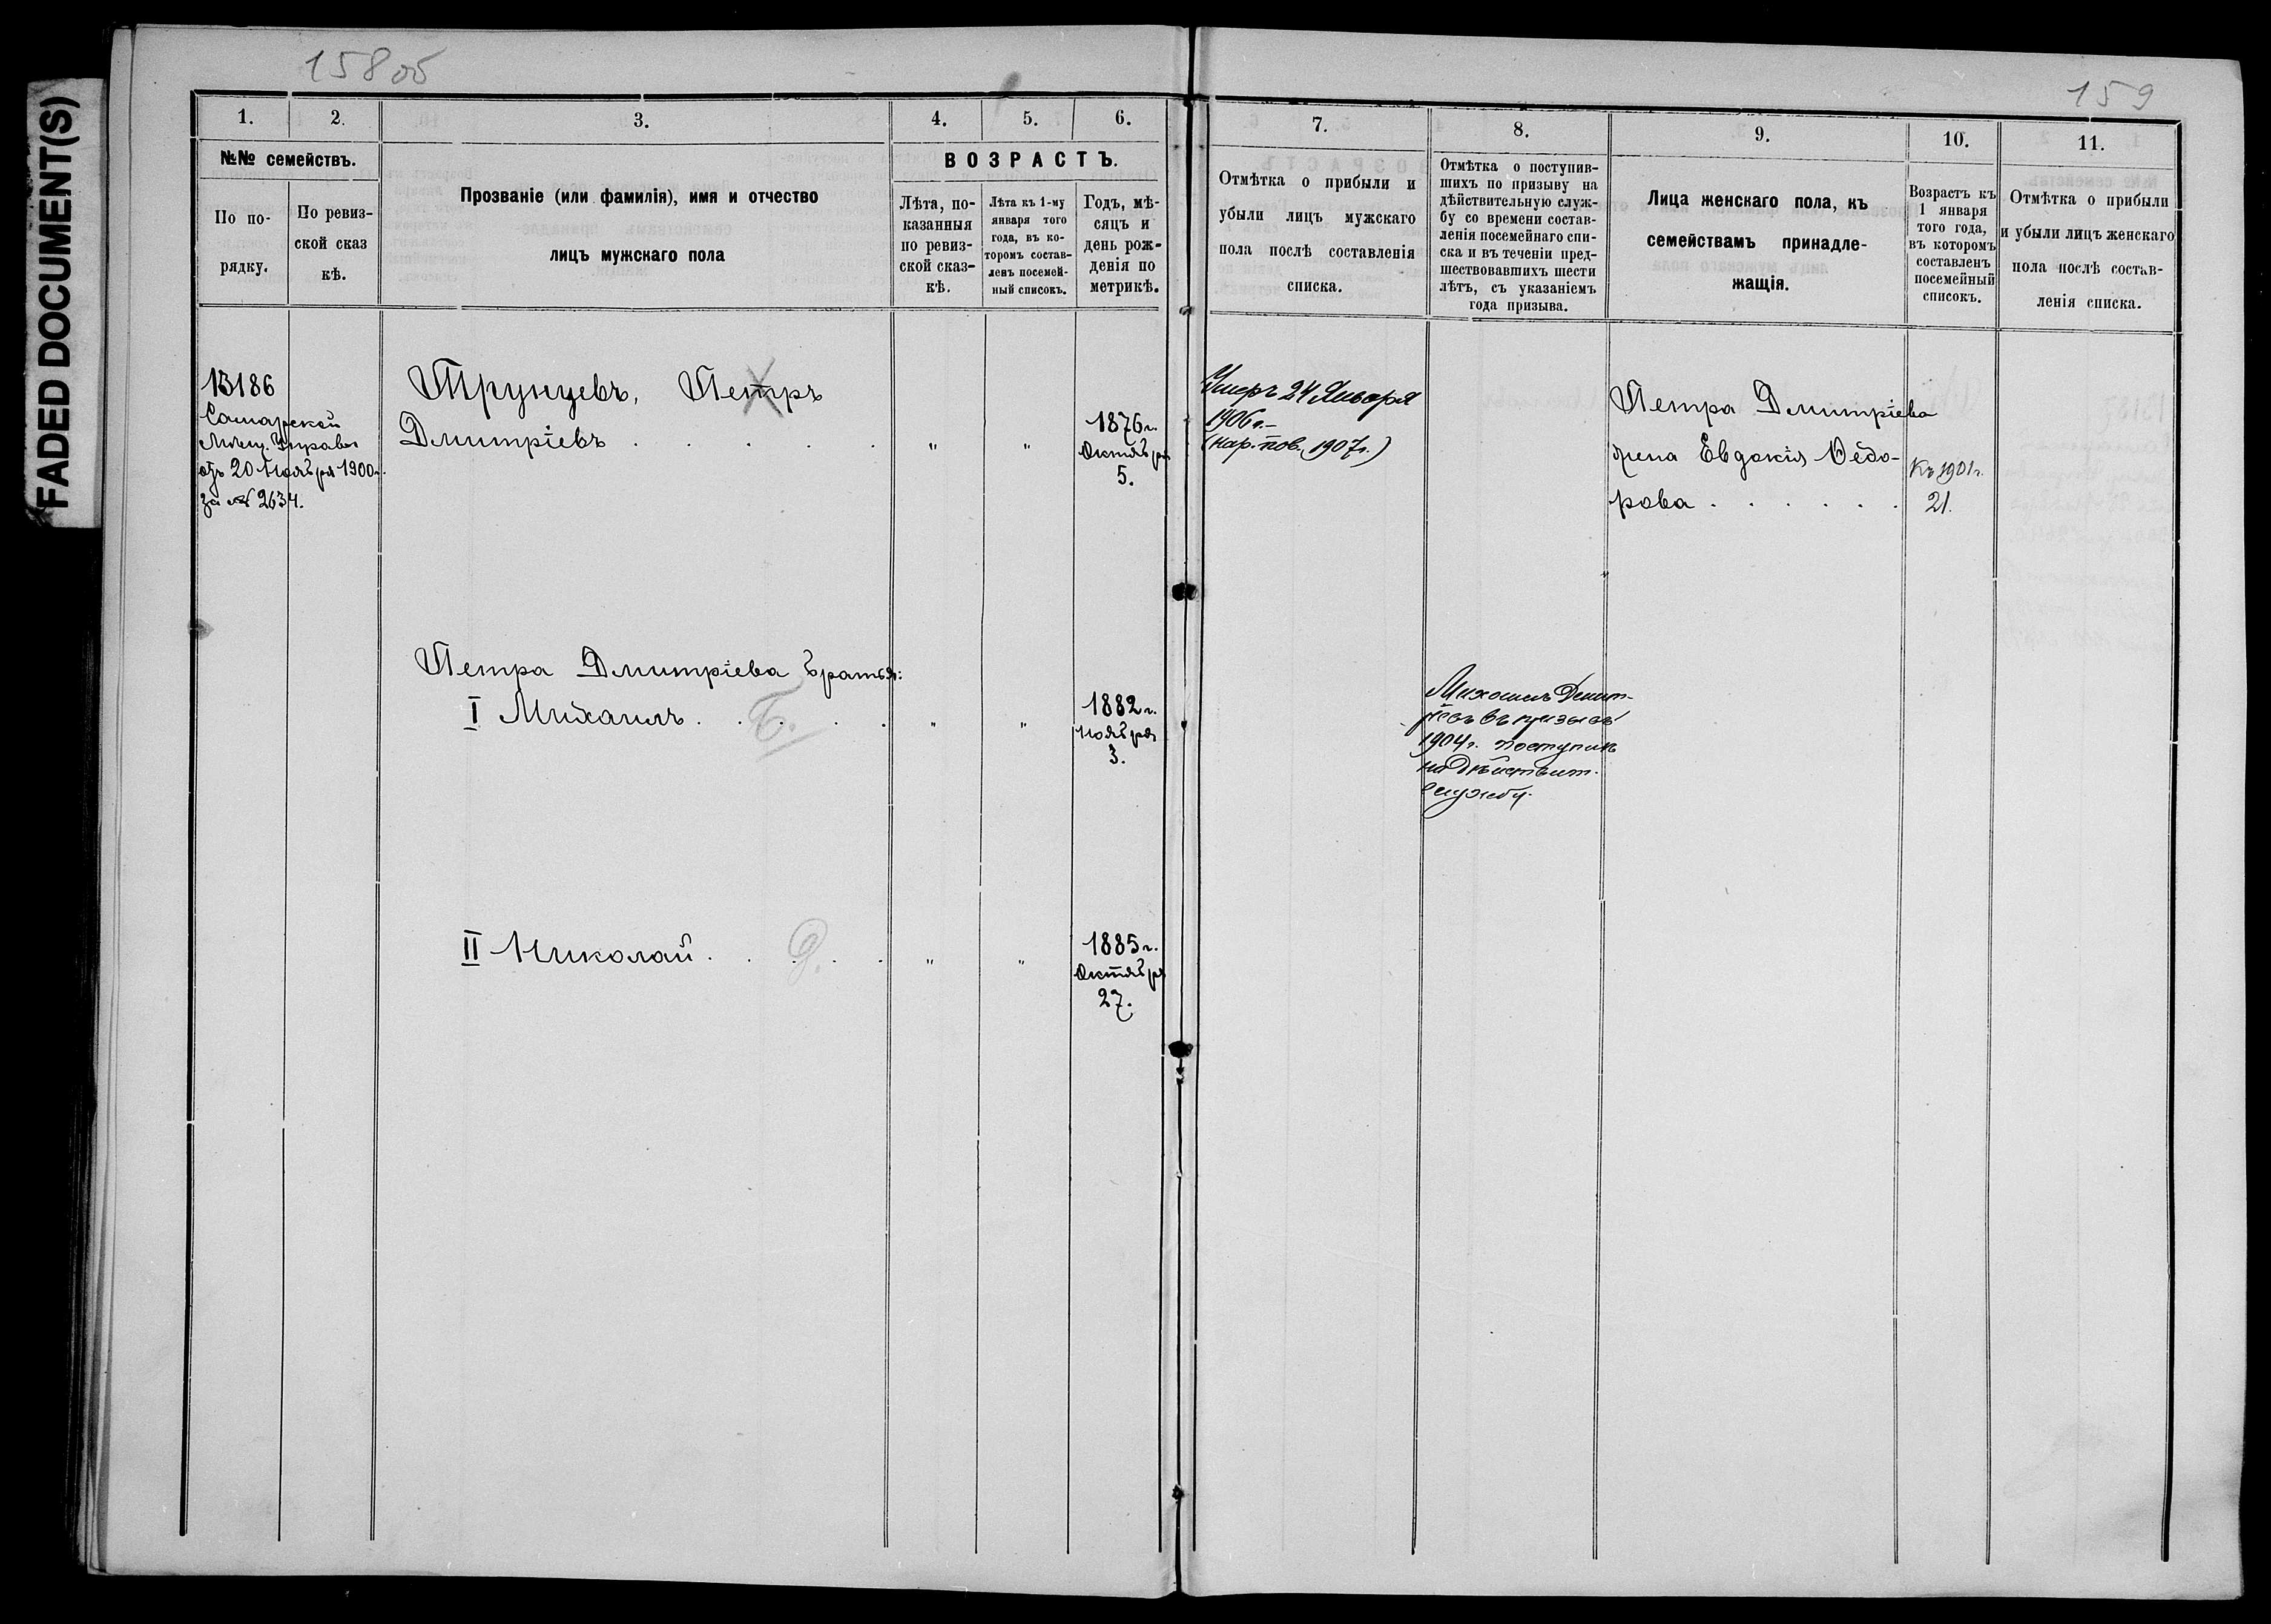 FADED DOCUMENT(S)
158 об
159
1.
2.
3.
4.
5.
6.
№№ семействъ.
По по-
рядку.
По ревиз-
ской сказ
кѣ.
Прозваніе (или фамилія), имя и отчество
лицъ мужскаго пола
ВОЗРАСТЪ.
Лѣта, по-
казанныя
по ревиз-
ской сказ-
кѣ.
Лѣта къ 1-му
января того
года, въ ко-
торомъ состав-
ленъ посемей-
ный списокъ.
Годъ, мѣ-
сяцъ и
день рож-
денія по
метрикѣ.
7.
8.
9.
10.
11.
Отмѣтка о прибыли и
убыли лицъ мужскаго
пола послѣ составленія
списка.
Отмѣтка о поступив-
шихъ по призыву на
дѣйствительную служ-
бу со времени состав-
ленія посемейнаго спи-
ска и въ теченіи пред-
шествовавшихъ шести
лѣтъ, съ указаніемъ
года призыва.
Лица женскаго пола, къ
семействамъ принадле-
жащія.
Возрастъ къ
1 января
того года,
въ которомъ
составленъ
посемейный
списокъ.
Отмѣтка о прибыли
и убыли лицъ женскаго
пола послѣ состав-
ленія списка.
13186
Самарской
Мѣщ. Управы
отъ 20 Ноября 1900 г.
за № 2634.
Трунцевъ, Петръ
Дмитріевъ . . . . .
" "
1876 г.
Октября
5.
Умеръ 24 Января
1906 г. –
(нар. пов. 1907 г.)
Петра Дмитріева
жена Евдокія Ѳедо-
рова . . . . . .
Къ 1901 г.
21.
Петра Дмитріева братья:
I Михаилъ . . Б. . .
" "
1882 г.
Ноября
3.
Михаилъ Дмит-
ріевъ въ призывъ
1904 г. поступилъ
на Дѣйствит.
службу.
II Николай . . . . .
" "
1885 г.
Октября
27.